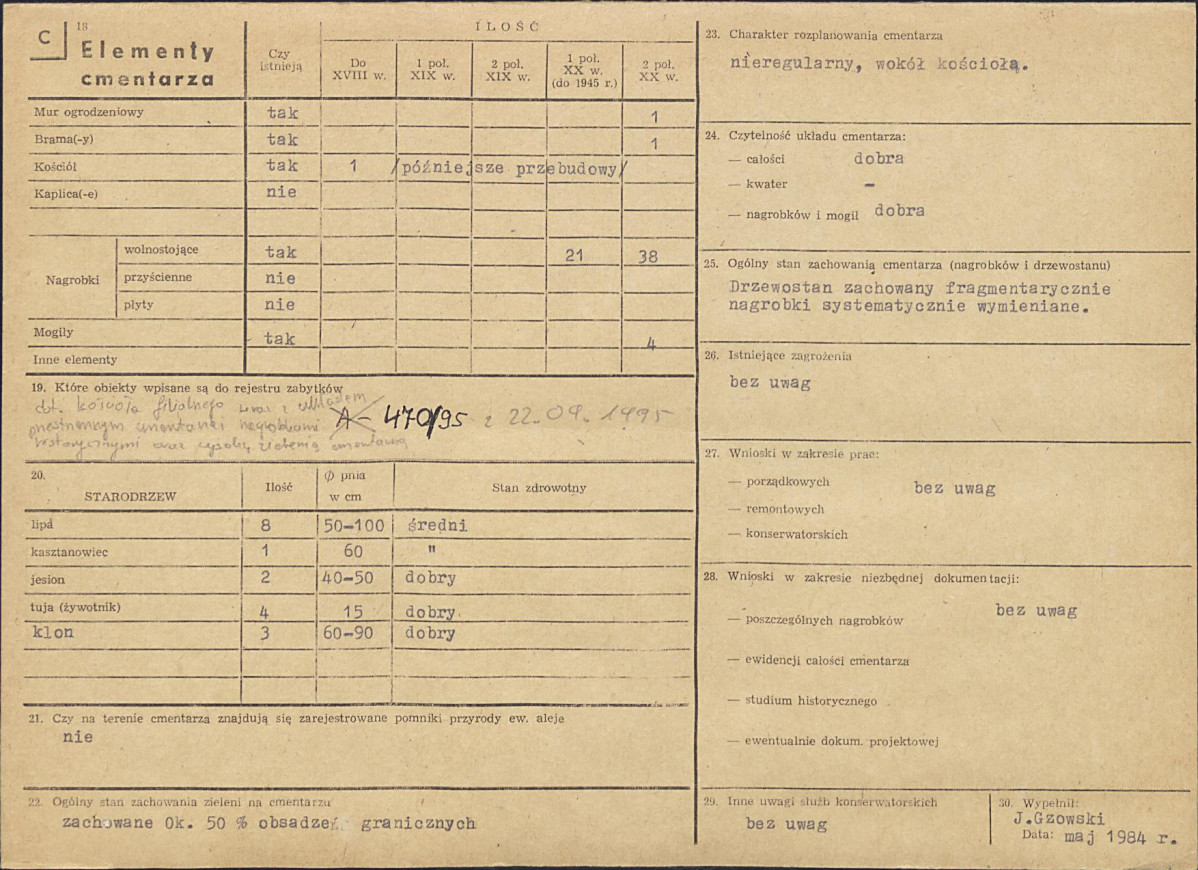 C
18
Elementy
cmentarza
Czy
istnieją
ILOŚĆ
Do
XVIII w.
1 poł.
XIX w.
2 poł.
XIX w.
1 poł.
XX w.
(do 1945 r.)
2 poł.
XX w.
Mur ogrodzeniowy tak 1
Brama(-y) tak 1
Kościół tak 1 /późniejsze przebudowy/
Kaplica(-e) nie
Nagrobki
wolnostojące tak 21 38
przyścienne nie
płyty nie
Mogiły tak 4
Inne elementy
19. Które obiekty wpisane są do rejestru zabytków
dot. kościoła filialnego wraz z układem
przestrzennym cmentarza nagrobkami A-470/95 z 22.09.1995
historycznymi oraz wysoką zielenią cmentarną
20.
STARODRZEW
Ilość
∅ pnia
w cm
Stan zdrowotny
lipa 8 50-100 średni
kasztanowiec 1 60 "
jesion 2 40-50 dobry
tuja (żywotnik) 4 15 dobry
klon 3 60-90 dobry
21. Czy na terenie cmentarza znajdują się zarejestrowane pomniki przyrody ew. aleje
nie
22. Ogólny stan zachowania zieleni na cmentarzu
zachowane 0k. 50 % obsadzeń granicznych
23. Charakter rozplanowania cmentarza
nieregularny, wokół kościołą.
24. Czytelność układu cmentarza:
— całości dobra
— kwater -
— nagrobków i mogił dobra
25. Ogólny stan zachowania cmentarza (nagrobków i drzewostanu)
Drzewostan zachowany fragmentarycznie
nagrobki systematycznie wymieniane.
26. Istniejące zagrożenia
bez uwag
27. Wnioski w zakresie prac:
— porządkowych bez uwag
— remontowych
— konserwatorskich
28. Wnioski w zakresie niezbędnej dokumentacji:
bez uwag
— poszczególnych nagrobków
— ewidencji całości cmentarza
— studium historycznego
— ewentualnie dokum. projektowej
29. Inne uwagi służb konserwatorskich
bez uwag
30. Wypełnił:
J.Gzowski
Data: maj 1984 r.